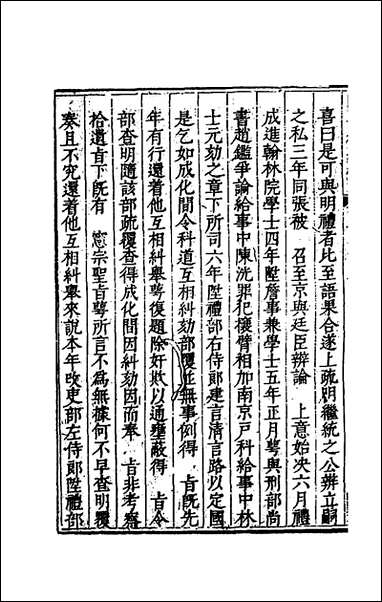 喜曰是可與明禮者比至語果合遂上疏明繼統之公辨立嗣
之私三年同張被　召至京與廷臣辨論　上意始決六月禮
成進翰林院學士四年陞詹事兼學士五年正月萼與刑部尚
書趙鑑爭論給事中陳洸罪犯攘臂相加南京戶科給事中林
士元劾之章下所司六年陞禮部右侍郎建言清言路以定國
是乞如成化間令科道互相糾劾部覆並無事例得　旨既先
年有行還着他互相糾舉萼復題除奸欺以通壅蔽得　旨令
部查明隨該部疏覆查得成化間因糾劾因而奉　旨非考察
拾遺旨下既有　憲宗聖旨萼所言不為無據何不早查明覆
奏且不究還着他互相糾舉來說本年改吏部左侍郎陞禮部